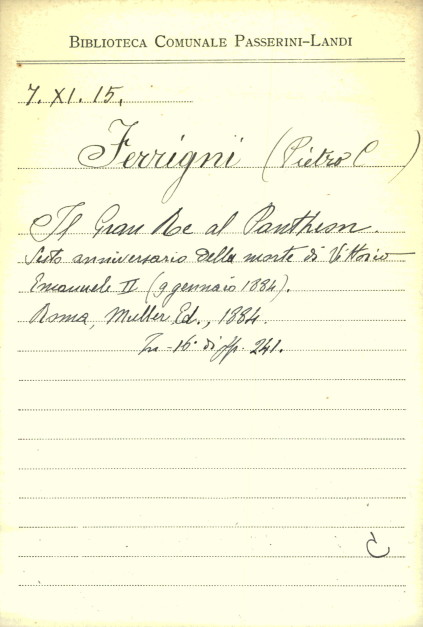 BIBLIOTECA COMUNALE PASSERINI-LANDI
7. XI. 15.
Ferrigni (Pietro C )
Il Gran Re al Pantheon.
Sesto anniversario della morte di Vittorio
Emanuele II (9 gennaio 1884).
Roma, Muller Ed., 1884.
In-16° di pp. 241.